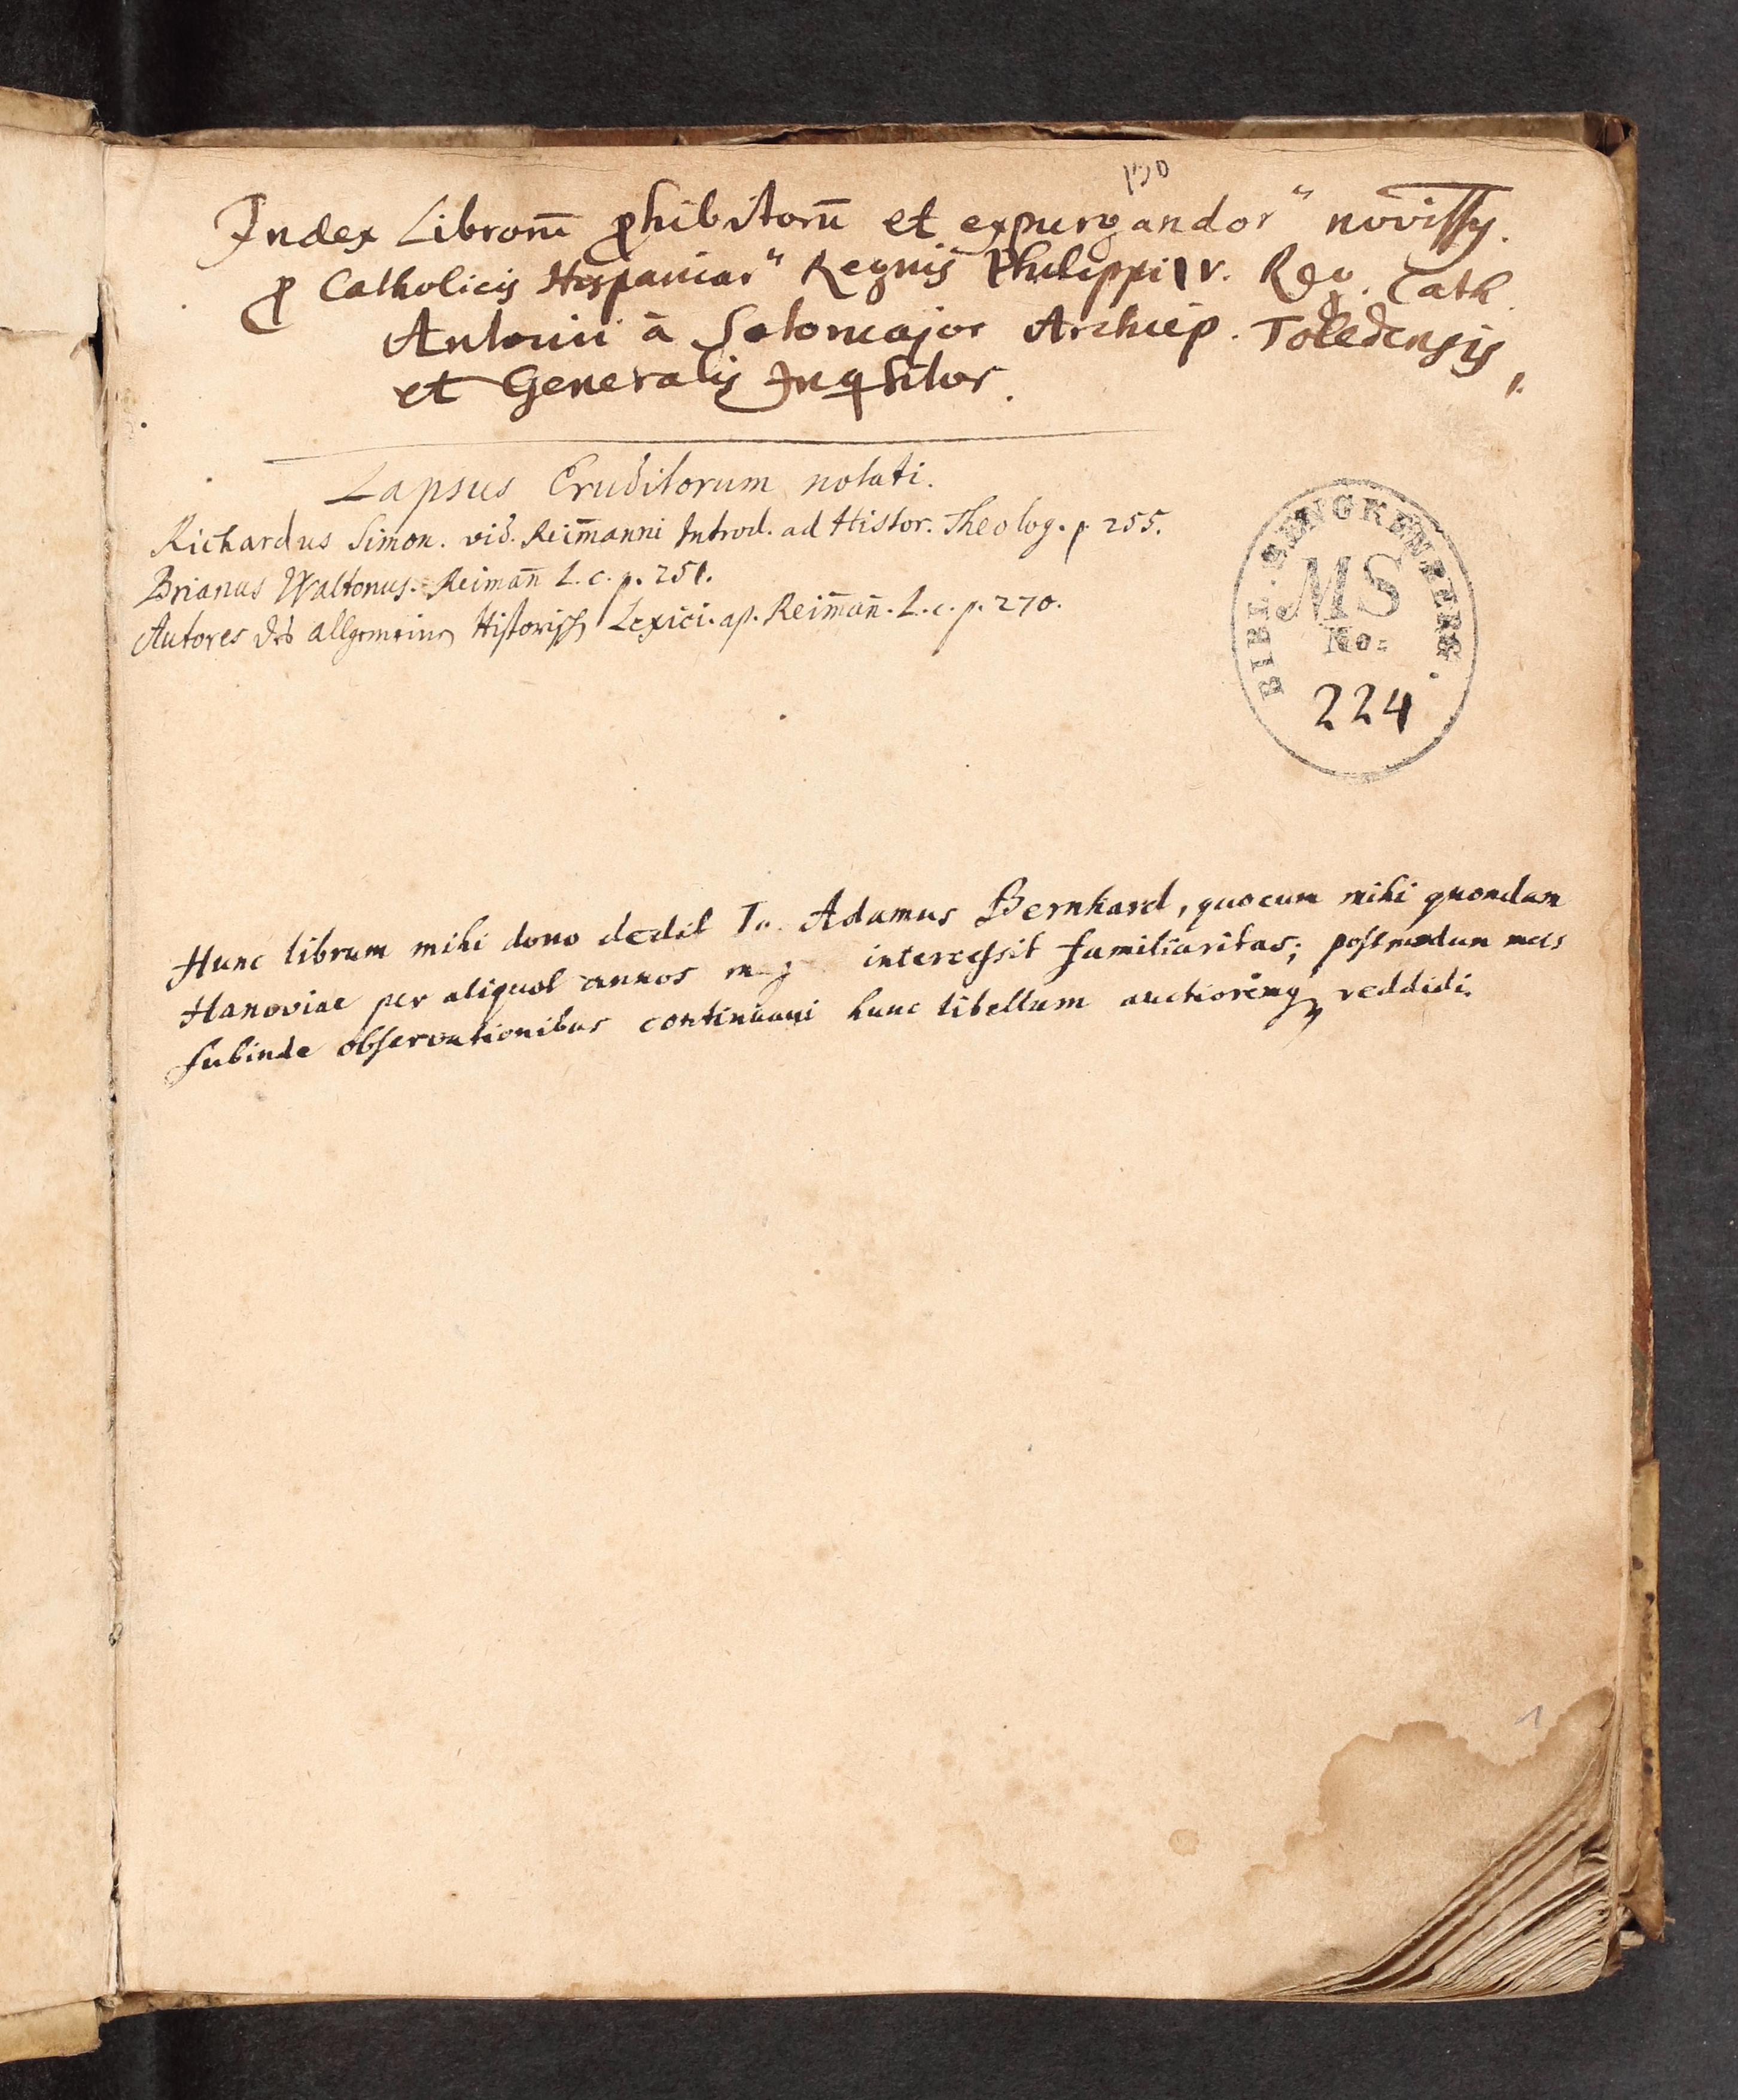 Index Librorum̄ ꝓhibitorū et expurgandor" novissꝫ.
ꝓ Catholicis Hispaniar" Regnis Philippi IV. Reg. Cath.
Antonii à Sotomajor Archiep. Toledensis,
et Generalis Inqsitor.
Lapsus Eruditorum notati.
Richardus Simon. vid. Reim̄anni Introd. ad Histor. Theolog. p. 255.
Brianus Waltonus. Reiman̄ l. c. p. 251.
Autores des allgemeinen Historisch Lexici. ap. Reim̄an̄. l. c. p. 270.
BIBL. SENCKENBERG.
MS
No:
224
Hunc librum mihi dono dedit Io. Adamus Bernhard, quocum mihi quondam
Hanoviae per aliquot annos intercessit familiaritas; postmodum meis
subinde observationibus continuaui hunc libellum auctioremq reddidi.
1